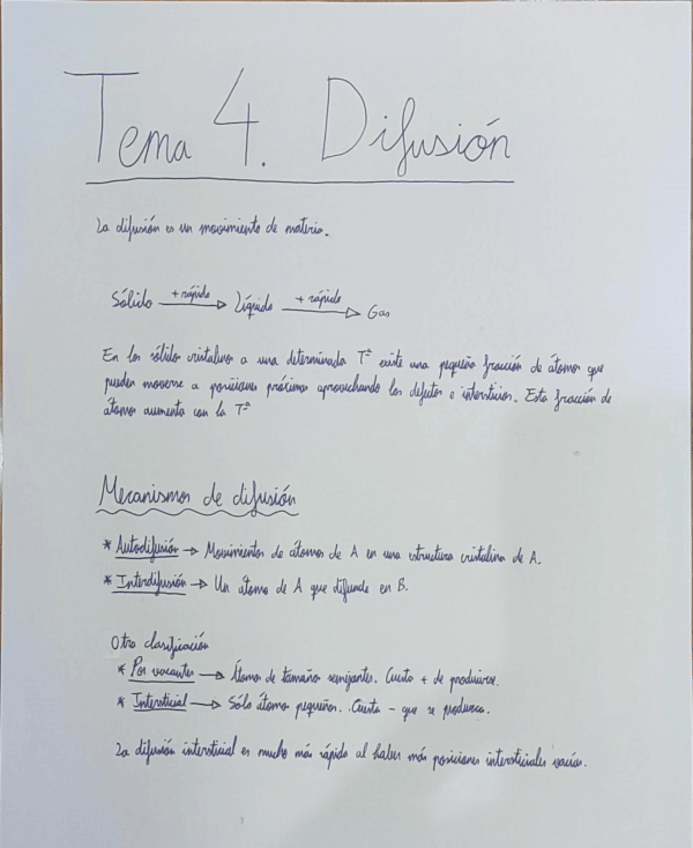 Tema 4. Difusión
La difusión es un movimiento de materia.
Sólido + rápido → Líquido + rápido → Gas
En los sólidos cristalinos a una determinada Tª existe una pequeña fracción de átomos que
pueden moverse a posiciones próximas aprovechando los defectos e intersticios. Esta fracción de
átomos aumenta con la Tª
Mecanismos de difusión
* Autodifusión → Movimientos de átomos de A en una estructura cristalina de A.
* Interdifusión → Un átomo de A que difunde en B.
Otra clasificación
* Por vacantes → Átomos de tamaño semejantes. Cuesta + de producirse.
* Intersticial → Sólo átomos pequeños. Cuesta - que se produzca.
La difusión intersticial es mucho más rápida al haber más posiciones intersticiales vacías.